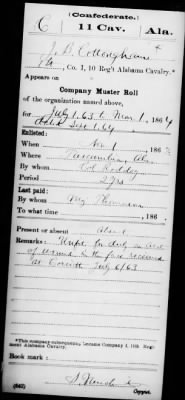 (Confederate.)
C 11 Cav. Ala.
J. D. Cottongham
Pvt, Co. I, 10 Reg't Alabama Cavalry.*
Appears on
Company Muster Roll
of the organization named above,
for July 1.63 to Mar 1, 1864
dated Sept 1.64
Enlisted:
When Nov 1, 186
Where Tuscumbia Ala
By whom Col Roddey
Period 2 yrs
Last paid:
By whom
To what time , 186 .
Present or absent Absent
Remarks: Unfit for duty on acct
of wound in the face received
at Corinth July 6/63
*This company subsequently became Company I, 11th Regiment Alabama Cavalry.
Book mark:
(642)
Copyist.